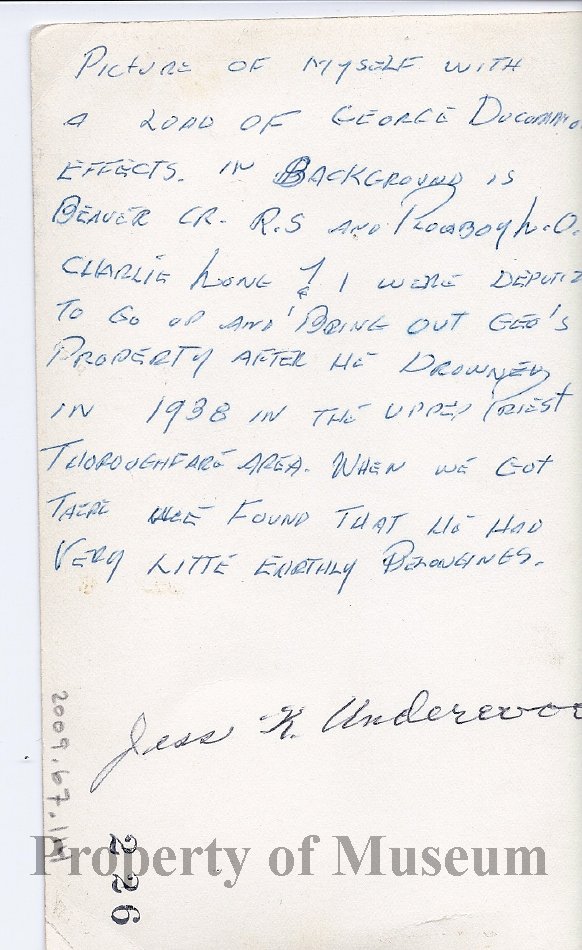 PICTURE OF MYSELF WITH
A LOAD OF GEORGE DUCUMMO
EFFECTS. IN BACKGROUND IS
BEAVER CR. R.S AND PLOWBOY L.O.
CHARLIE LONG & I WERE DEPUTIZ
TO GO UP AND BRING OUT GEO'S
PROPERTY AFTER HE DROWNED
IN 1938 IN THE UPPER PRIEST
THOROUGHFARE AREA. WHEN WE GOT
THERE WE FOUND THAT HE HAD
VERY LITTE EARTHLY BELONGINGS.
Jess K. Underwoo
2009.67.
226
Property of Museum